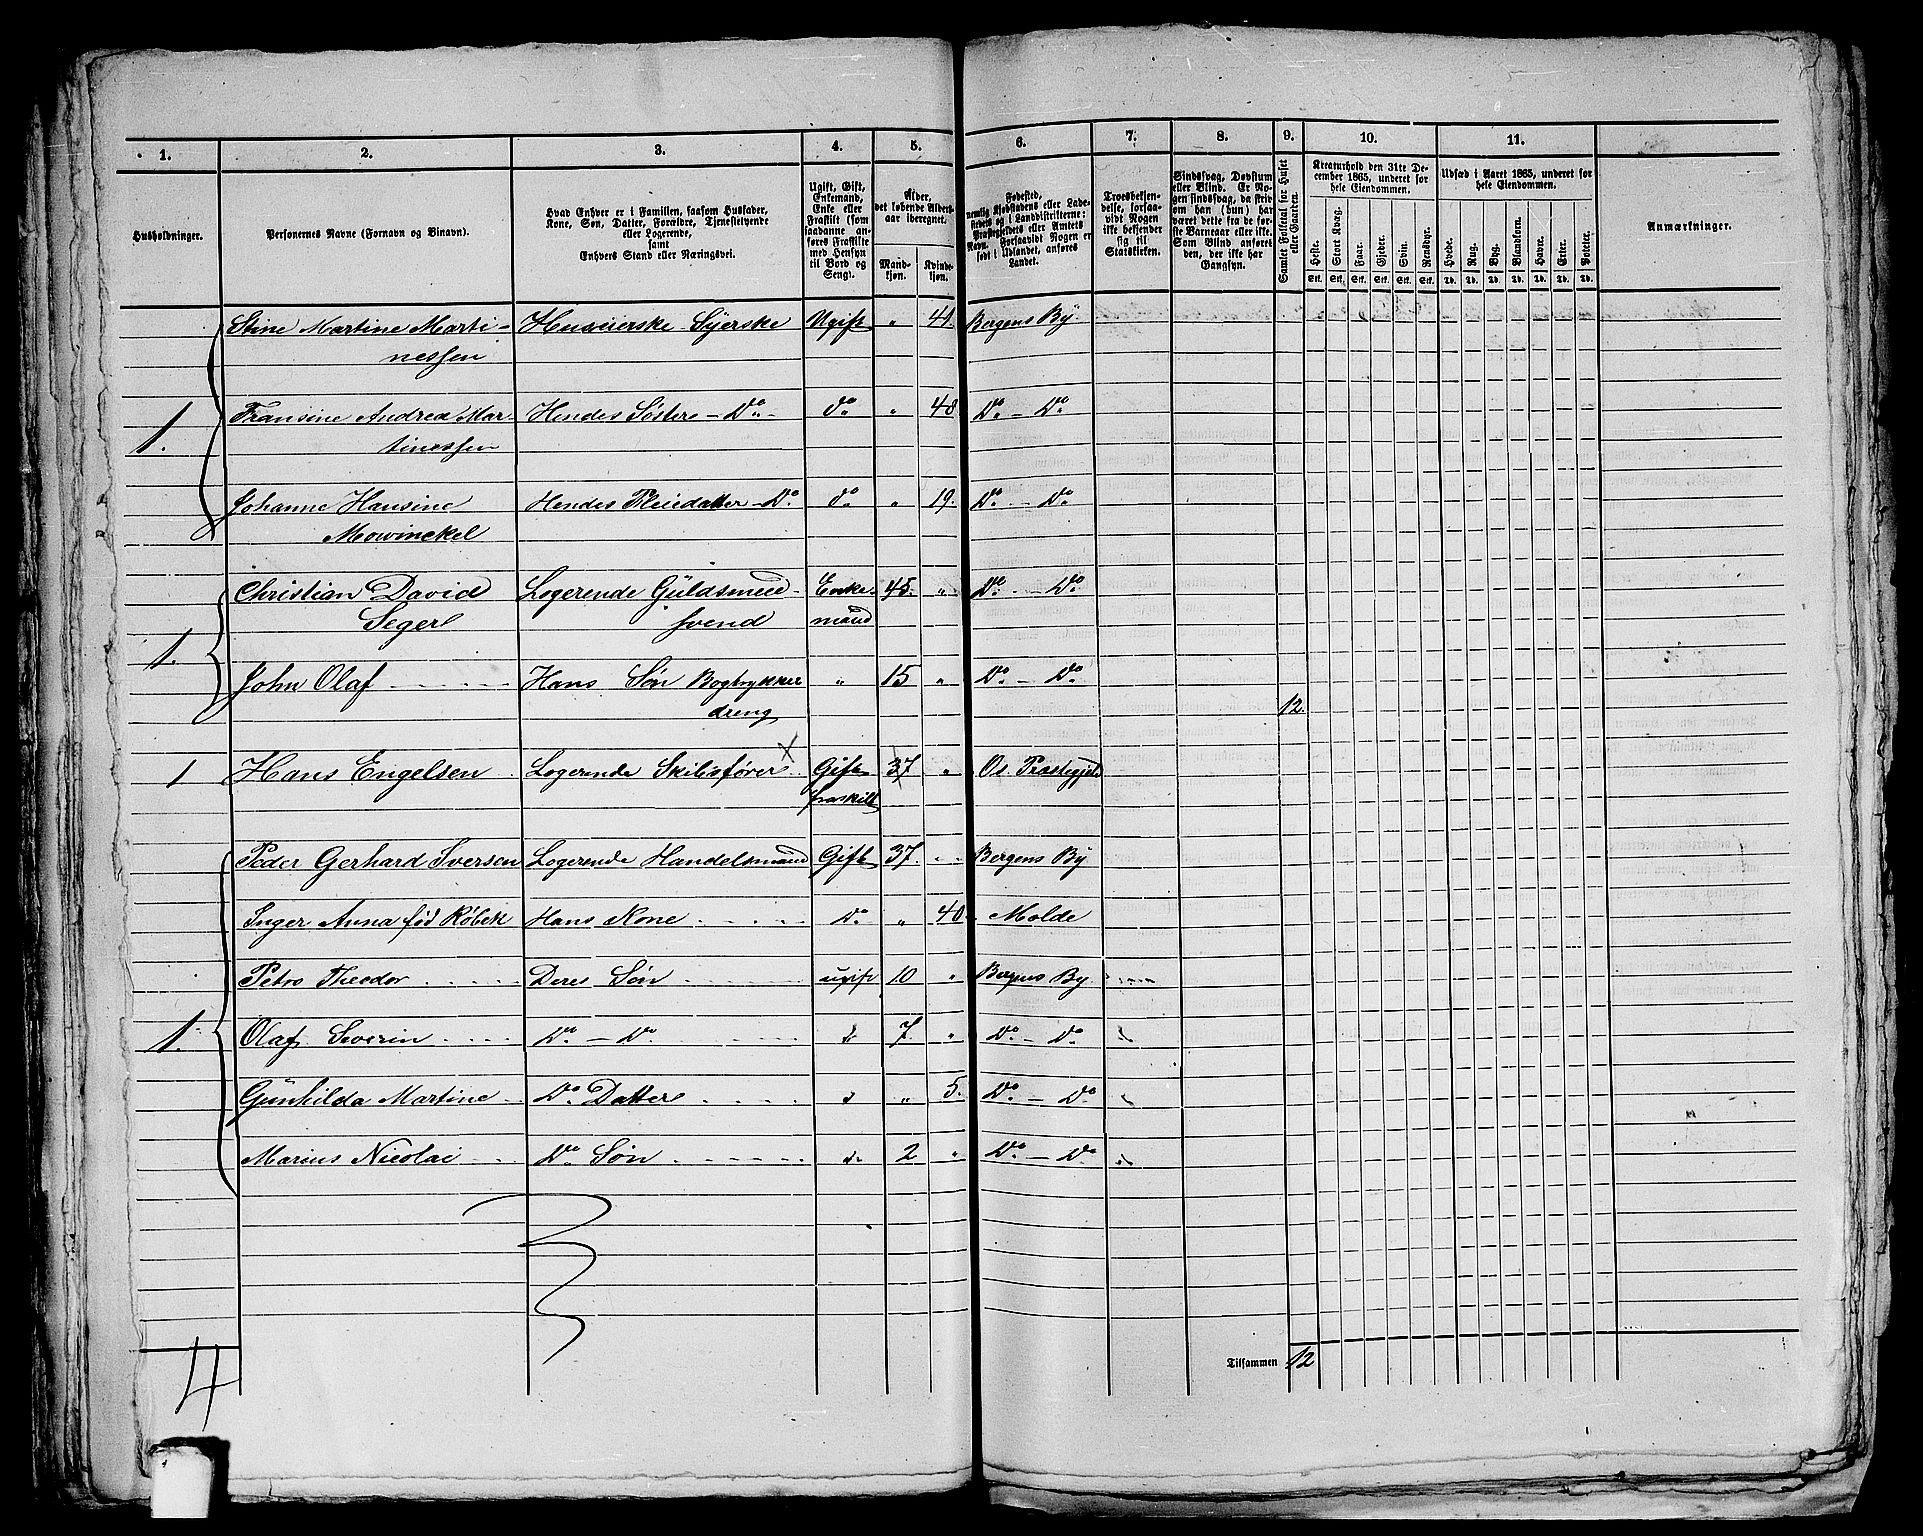 1. 2. 3. 4. 5. 6. 7. 8. 9. 10. 11.
Husholdninger.
Personernes Navne (Fornavn og Binavn).
Hvad Enhver er i Familien, saasom Husfader,
Kone, Søn, Datter, Forældre, Tjenestetyende
eller Logerende,
samt
Enhvers Stand eller Næringsvei.
Ugift, Gift,
Enkemand,
Enke eller
Fraskilt (som
saadanne an-
føres Fraskilte
med Hensyn
til Bord og
Seng).
Alder,
det løbende Alders-
aar iberegnet.
Mand-
kjøn.
Kvinde-
kjøn.
Fødested,
nemlig Kjøbstadens eller Lade-
stedets og i Landdistrikterne:
Præstegjeldets eller Amtets
Navn. Forsaavidt Nogen er
født i Udlandet, anføres
Landet.
Troesbekjen-
delse, forsaa-
vidt Nogen
ikke bekjender
sig til
Statskirken.
Sindssvag, Døvstum
eller Blind. Er No-
gen sindssvag, da skrives
om han (hun) har
været dette fra de før-
ste Barneaar eller ikke.
Som Blind anføres
den, der ikke har
Gangsyn.
Samlet Folketal for Huset
eller Gaarden.
Kreaturhold den 31te De-
cember 1865, underet for
hele Eiendommen.
Heste. Stort Kvæg. Faar. Gjeder. Svin. Rensdyr.
Stk. Stk. Stk. Stk. Stk. Stk.
Udsæd i Aaret 1865, underet for
hele Eiendommen.
Hvede. Rug. Byg. Blandkorn. Havre. Erter. Poteter.
Td. Td. Td. Td. Td. Td. Td.
Anmærkninger.
Stine Martine Marti- Huseierske Syerske Ugift " 41. Bergens By
nessen
1. Fransine Andrea Mar- Hendes Søster - Do - do " 48 Do - Do
tinessen
Johanne Hansine Hendes Pleiedatter - Do do " 19. Do - Do
Mowinckel
Christian David Logerende Guldsmed- Enke- 45. " Do - Do
Segerl svend mand
1.
John Olaf Hans Søn Bogtrykker " 15 " Do - Do
dreng 12.
1 Hans Engelsen Logerende Skibsfører Gift 37 " Os Præstegjeld
fraskilt
Peder Gerhard Iversen Logerende Handelsmand Gift 37. " Bergens By
Inger Anna fød Røbek Hans Kone Do " 40. Molde
Petro Theodor Deres Søn ugift 10 " Bergens By
1. Olaf Severin Do - Do 7. " Do - Do
Gunhilda Martine Do Datter " 5. Do - Do
Marius Nicolai Do Søn 2 " Do - Do
Tilsammen 12
4